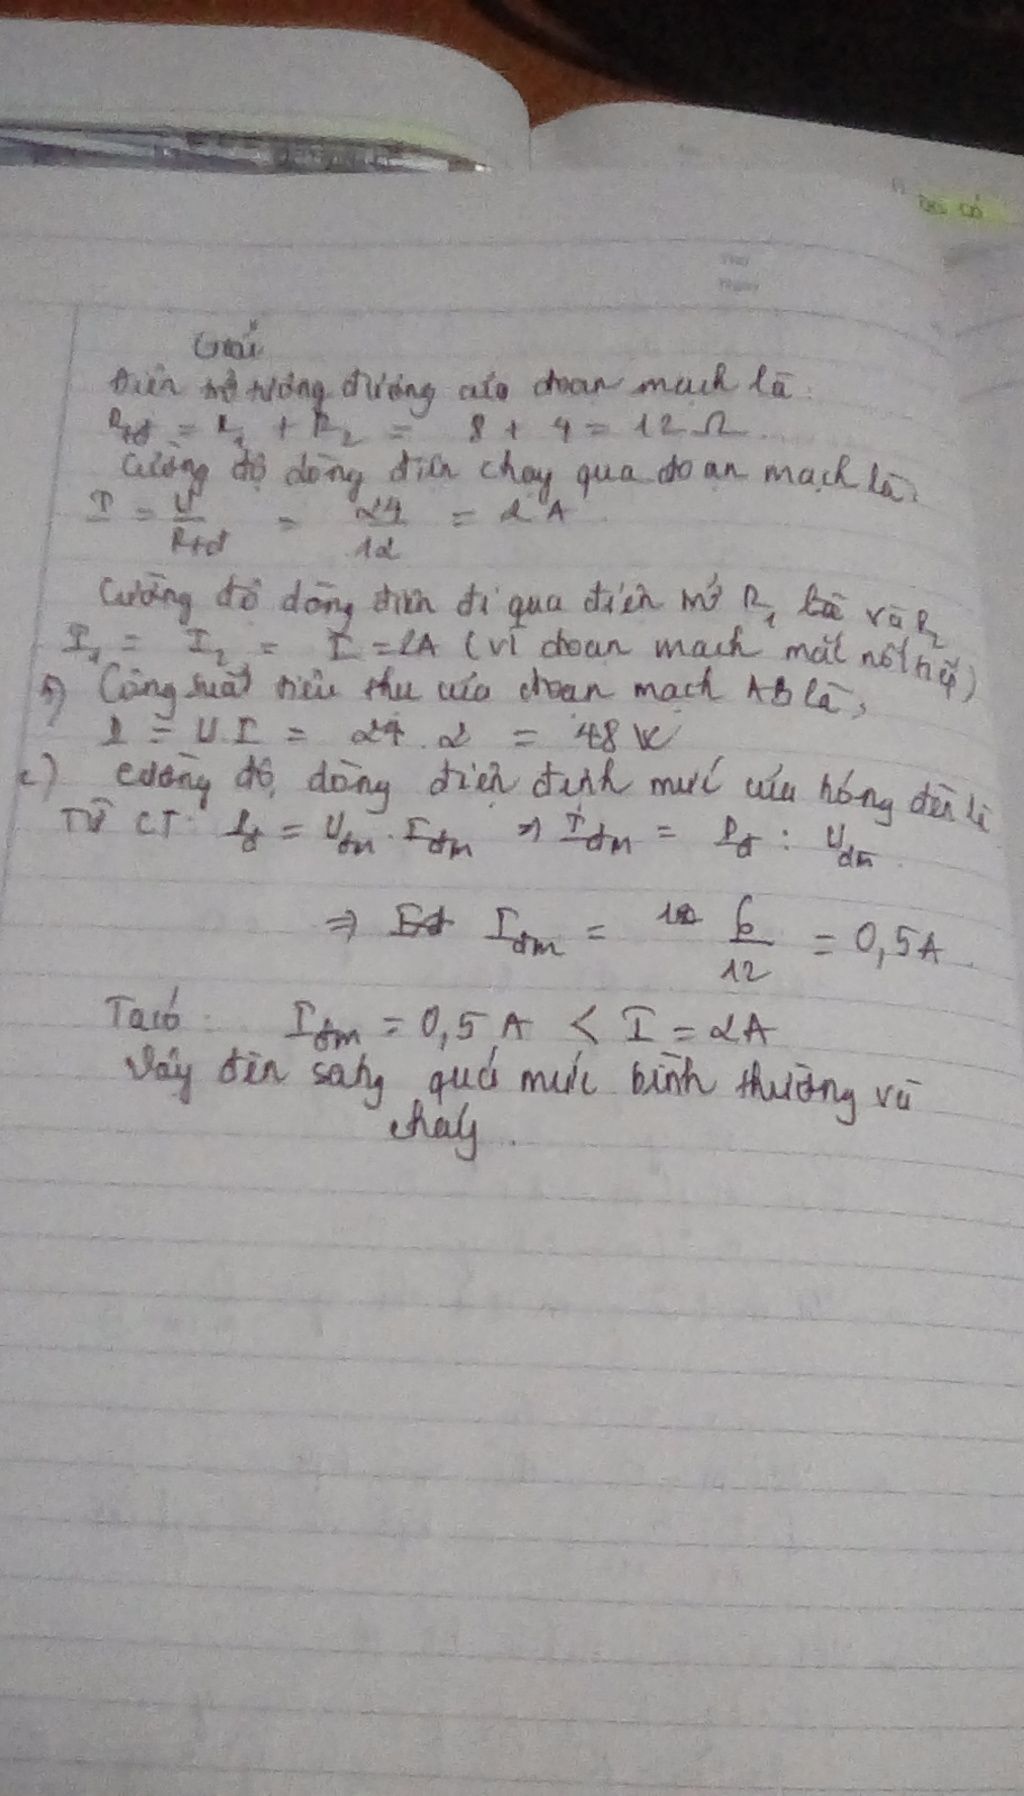 Giải
Điện trở tương đương của đoạn mạch là:
Rtđ = R1 + R2 = 8 + 4 = 12 Ω
Cường độ dòng điện chạy qua đoạn mạch là:
I = U/Rtđ = 24/12 = 2A
Cường độ dòng điện đi qua điện trở R1 và R2
I1 = I2 = I = 2A (vì đoạn mạch mắc nối tiếp)
b) Công suất tiêu thụ của đoạn mạch AB là,
P = U.I = 24.2 = 48 W
c) Cường độ dòng điện định mức của bóng đèn là
Từ CT: Pđ = Uđm.Iđm ⇒ Iđm = Pđ : Uđm
⇒ Iđm = 6/12 = 0,5A
Ta có: Iđm = 0,5A < I = 2A
Vậy đèn sáng quá mức bình thường và
cháy.